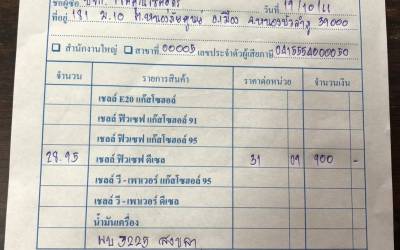 ชื่อผู้ซื้อ วันที่ 19/10/61
ที่อยู่ 181 ม.10 อ.เมือง จ.หนองบัวลำภู 39000
สำนักงานใหญ่ สาขาที่ 00005 เลขประจำตัวผู้เสียภาษี 0415554000050
จำนวน รายการสินค้า ราคาต่อหน่วย จำนวนเงิน
เชลล์ E20 แก๊สโซฮอล์
เชลล์ ฟิวเซฟ แก๊สโซฮอล์ 91
เชลล์ ฟิวเซฟ แก๊สโซฮอล์ 95
28.95 เชลล์ ฟิวเซฟ ดีเซล 31 09 900 -
เชลล์ วี - เพาเวอร์ แก๊สโซฮอล์ 95
เชลล์ วี - เพาเวอร์ ดีเซล
น้ำมันเครื่อง
3225 สงขลา